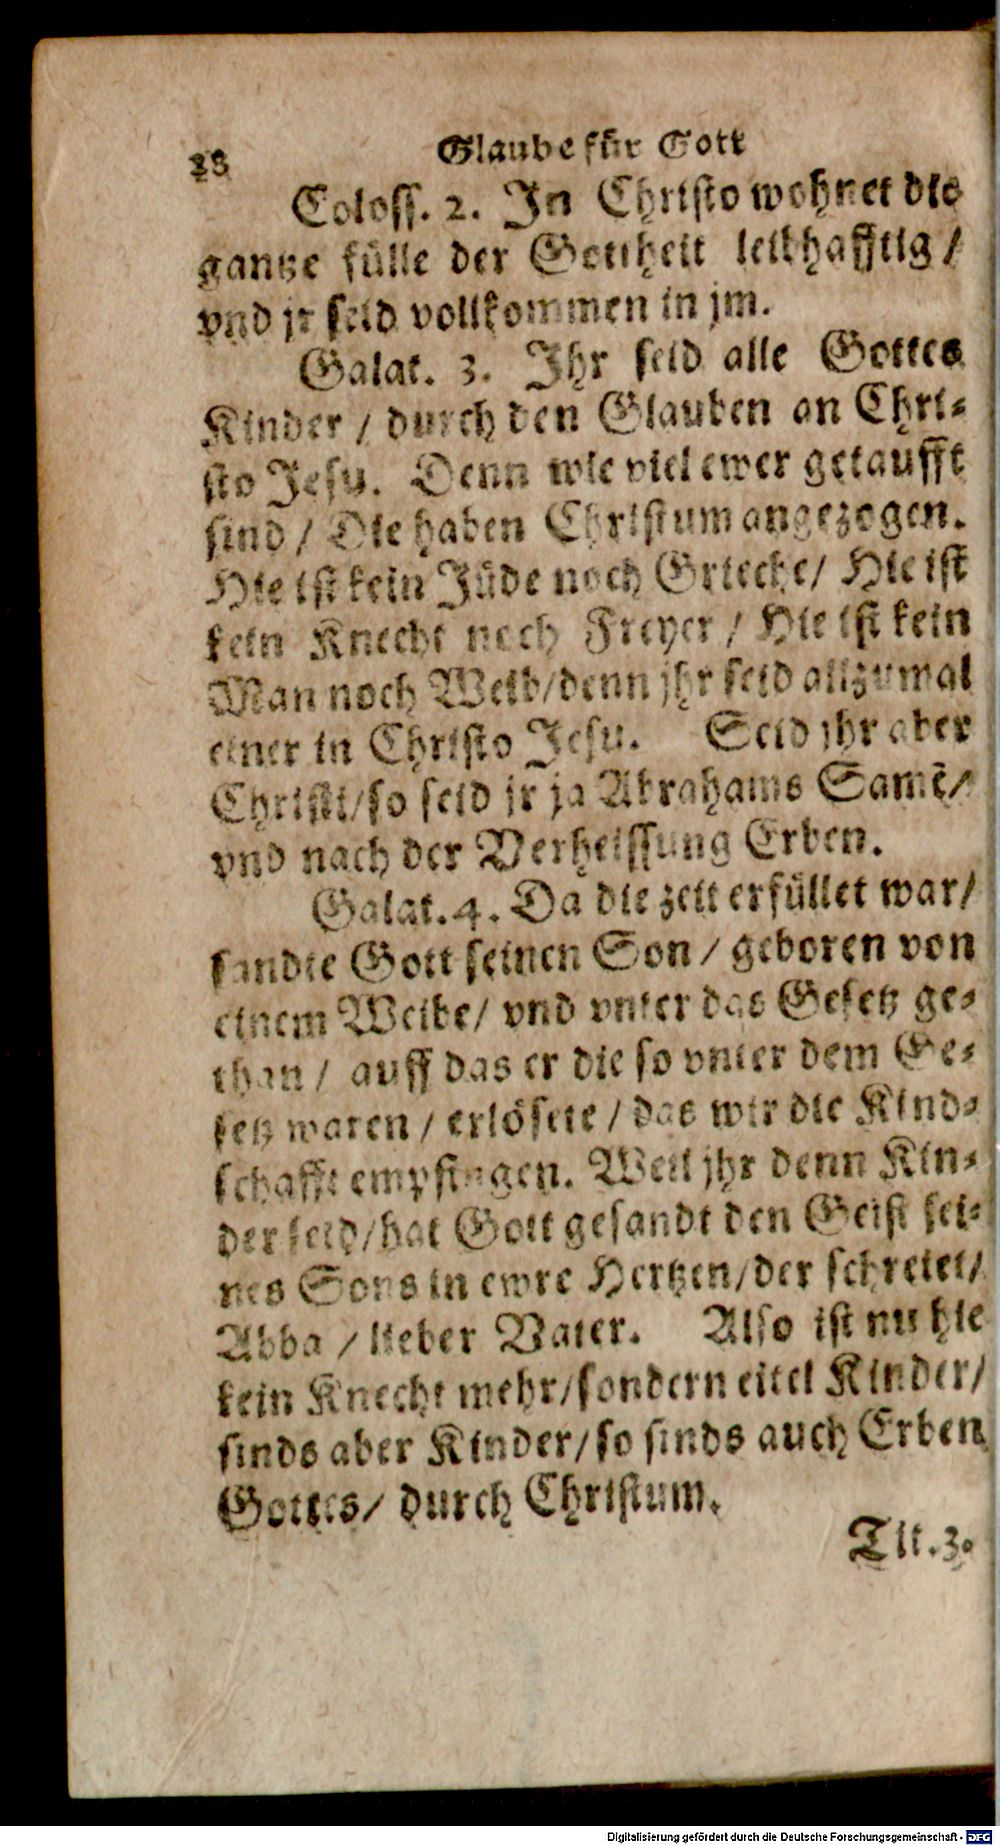 28 Glaube für Gott
Coloss. 2. In Christo wohnet die
gantze fülle der Gottheit leibhafftig /
vnd jr seid vollkommen in jm.
Galat. 3. Ihr seid alle Gottes
Kinder / durch den Glauben an Chri-
sto Jesu. Denn wie viel ewer getaufft
sind / Die haben Christum angezogen.
Hie ist kein Jüde noch Grieche / Hie ist
kein Knecht noch Freyer / Hie ist kein
Man noch Weib / denn jhr seid allzumal
einer in Christo Jesu. Seid jhr aber
Christi / so seid jr ja Abrahams Samē /
vnd nach der Verheissung Erben.
Galat. 4. Da die zeit erfüllet war /
sandte Gott seinen Son / geboren von
einem Weibe / vnd vnter das Gesetz ge-
than / auff das er die so vnter dem Ge-
setz waren / erlösete / das wir die Kind-
schafft empfingen. Weil jhr denn Kin-
der seid / hat Gott gesandt den Geist sei-
nes Sons in ewre Hertzen / der schreiet /
Abba / lieber Vater. Also ist nu hie
kein Knecht mehr / sondern eitel Kinder /
sinds aber Kinder / so sinds auch Erben
Gottes / durch Christum.
Tit. 3.
Digitalisierung gefördert durch die Deutsche Forschungsgemeinschaft - DFG